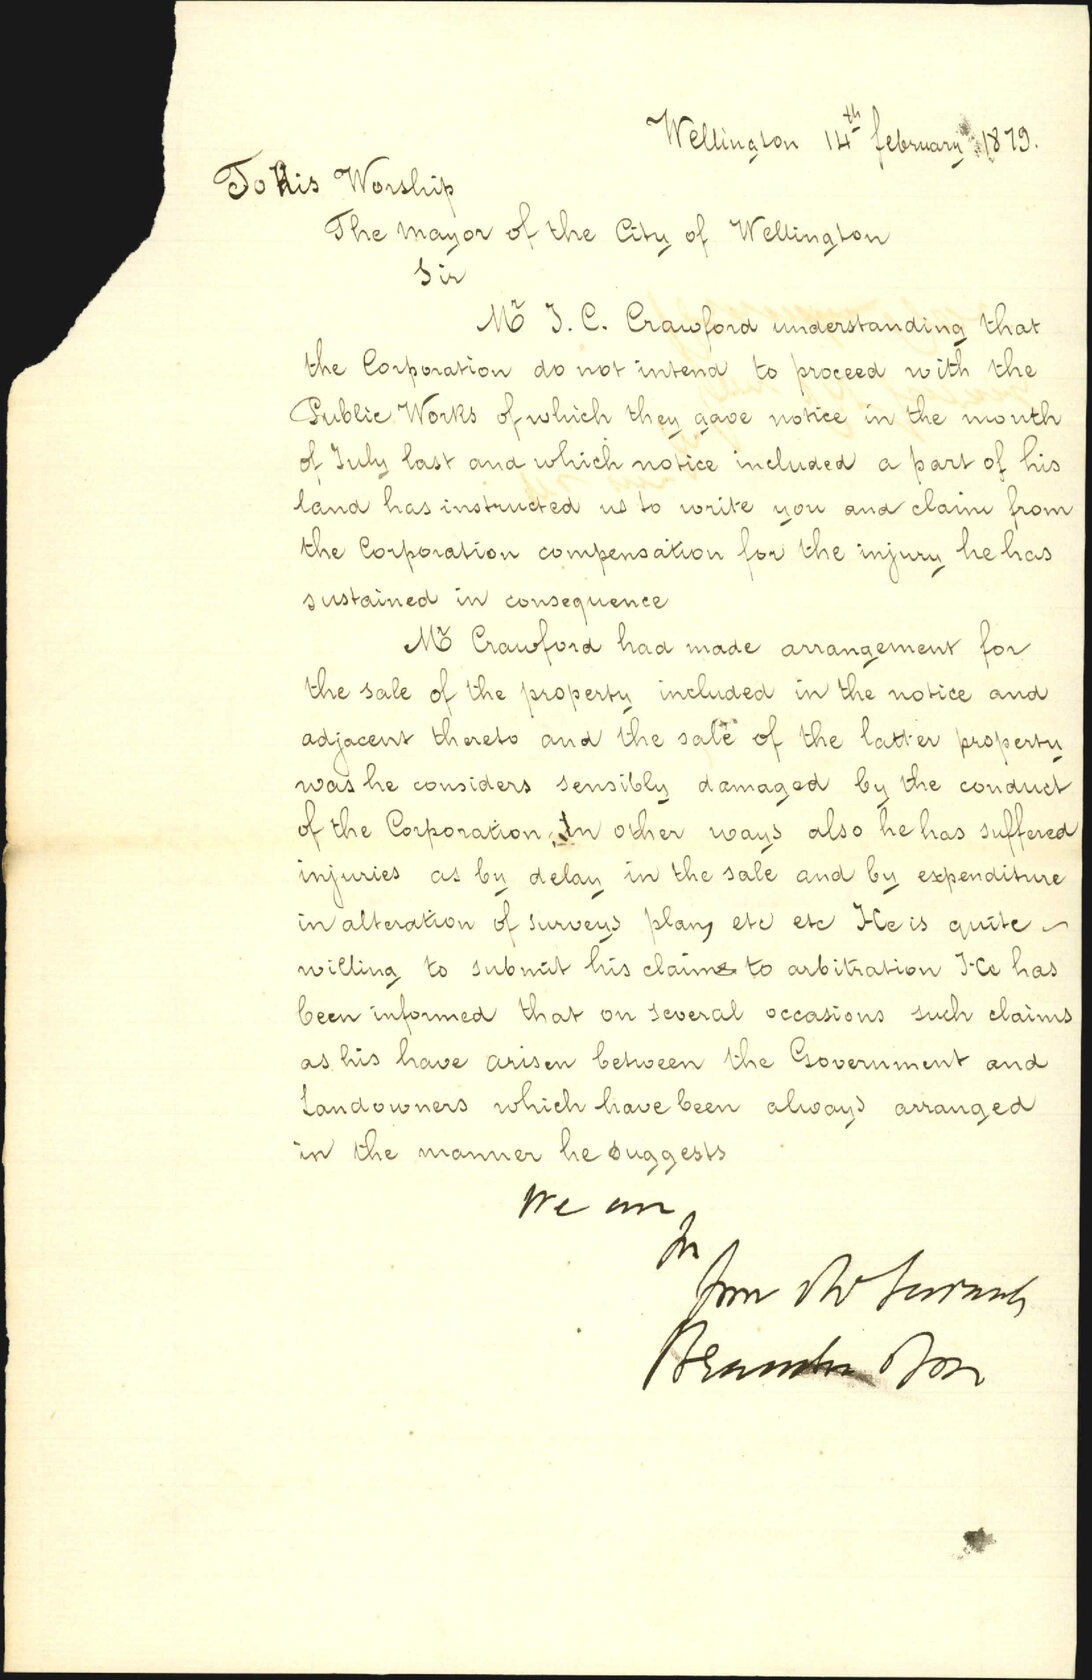 Wellington 14th february 1879.
To His Worship
The Mayor of the City of Wellington
Sir
Mr J. C. Crawford understanding that
the Corporation do not intend to proceed with the
Public Works of which they gave notice in the month
of July last and which notice included a part of his
land has instructed us to write you and claim from
the Corporation compensation for the injury he has
sustained in consequence
Mr Crawford had made arrangement for
the sale of the property included in the notice and
adjacent thereto and the sale of the latter property
was he considers sensibly damaged by the conduct
of the Corporation. In other ways also he has suffered
injuries as by delay in the sale and by expenditure
in alteration of surveys plans etc etc He is quite
willing to submit his claims to arbitration He has
been informed that on several occasions such claims
as his have arisen between the Government and
Landowners which have been always arranged
in the manner he suggests
We are
Sir
Your Servants